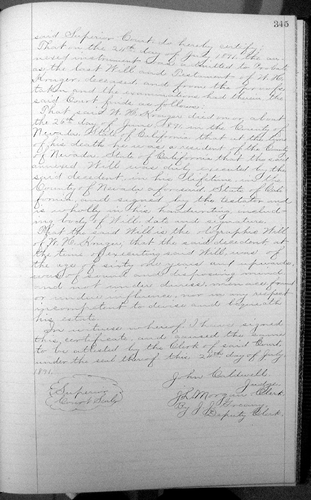 345
said Superior Court, do hereby certify:
That on the 20th day of July 1891 the an-
nexed instrument was admitted to probate
as the last Will and Testament of W. H.
Kruger, deceased and from the proofs
taken and the examination had therein the
said Court finds as follows:
That said W. H. Kruger died on or about
the 25th day of 1891 in the County of
Nevada, State of California that at the time
of his death he was a resident of the County
of Nevada, State of California that the said
annexed Will was executed by the
said decedent in the
County of Nevada aforesaid State of Cali-
fornia, and signed by the testator and
is wholly in his handwriting includ-
ing body of Will date and signature.
That the said Will is the olographic Will
of W. H. Kruger, that the said decedent at
the time of executing said Will, was of
the age of sixty one years and upwards,
was of sound and disposing mind
and not under duress, menace, fraud
or undue influence, nor in any respect
incompetent to devise and bequeath
his estate.
In witness whereof, I have signed
this certificate, and caused the same
to be attested by the Clerk of said Court,
under the seal thereof this 20th day of July
1891.
John Caldwell
Judge
Superior
Court Seal
J. L. Morgan Clerk
By
Deputy Clerk.